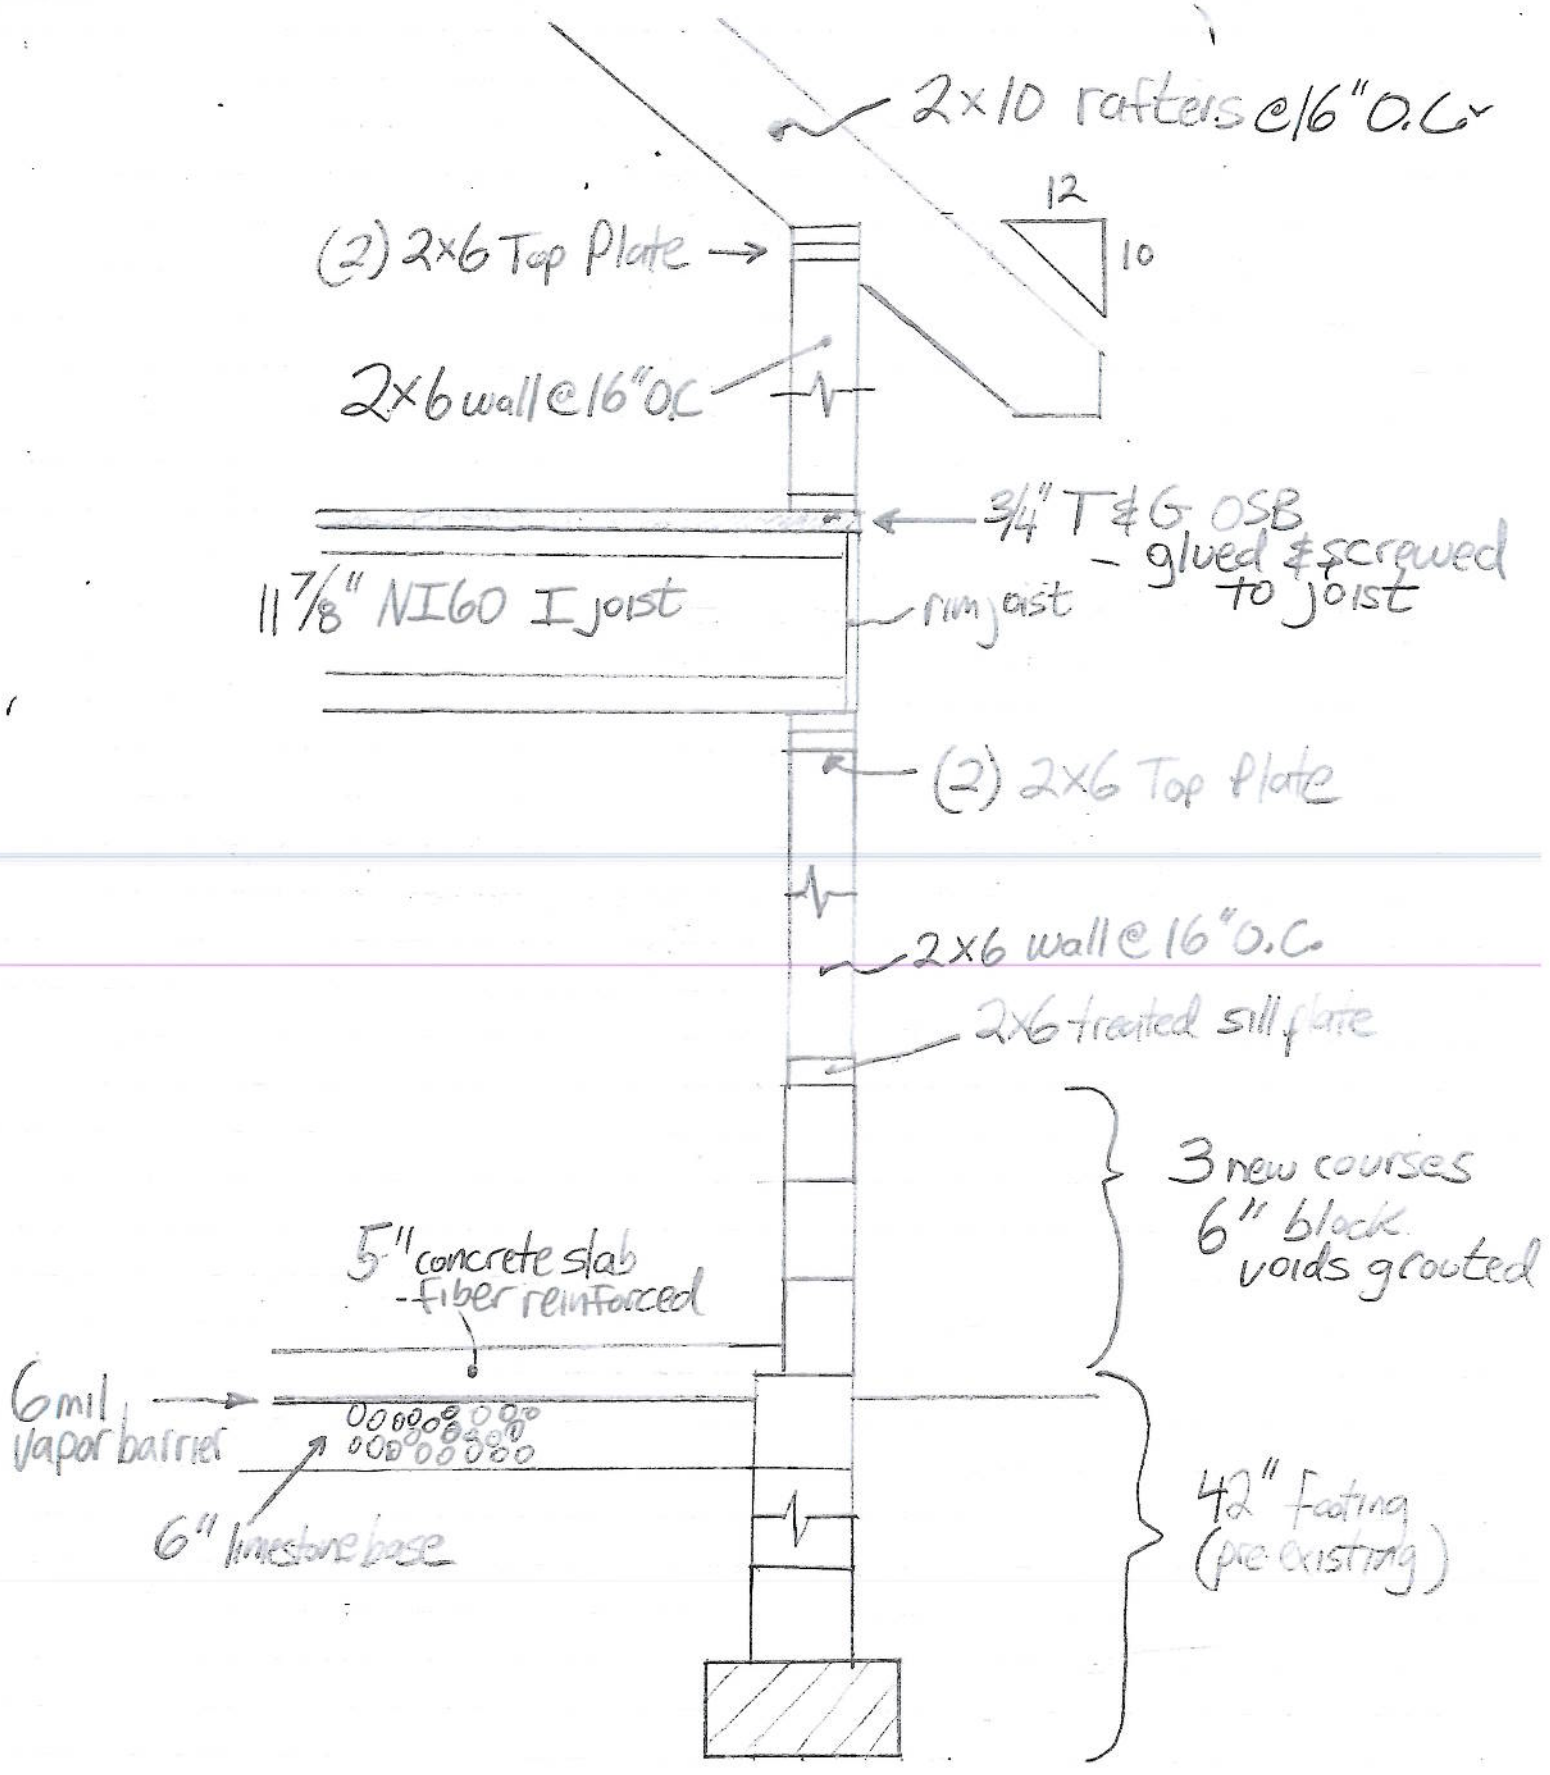 2×10 rafters @16" O.C.
12
10
(2) 2×6 Top Plate
2×6 wall @ 16" O.C
3/4" T & G OSB
- glued & screwed
to joist
11 7/8" NI60 I joist
rim joist
(2) 2×6 Top Plate
2×6 wall @ 16" O.C.
2×6 treated sill plate
3 new courses
6" block
voids grouted
5" concrete slab
- fiber reinforced
6 mil
vapor barrier
6" limestone base
42" footing
(pre existing)